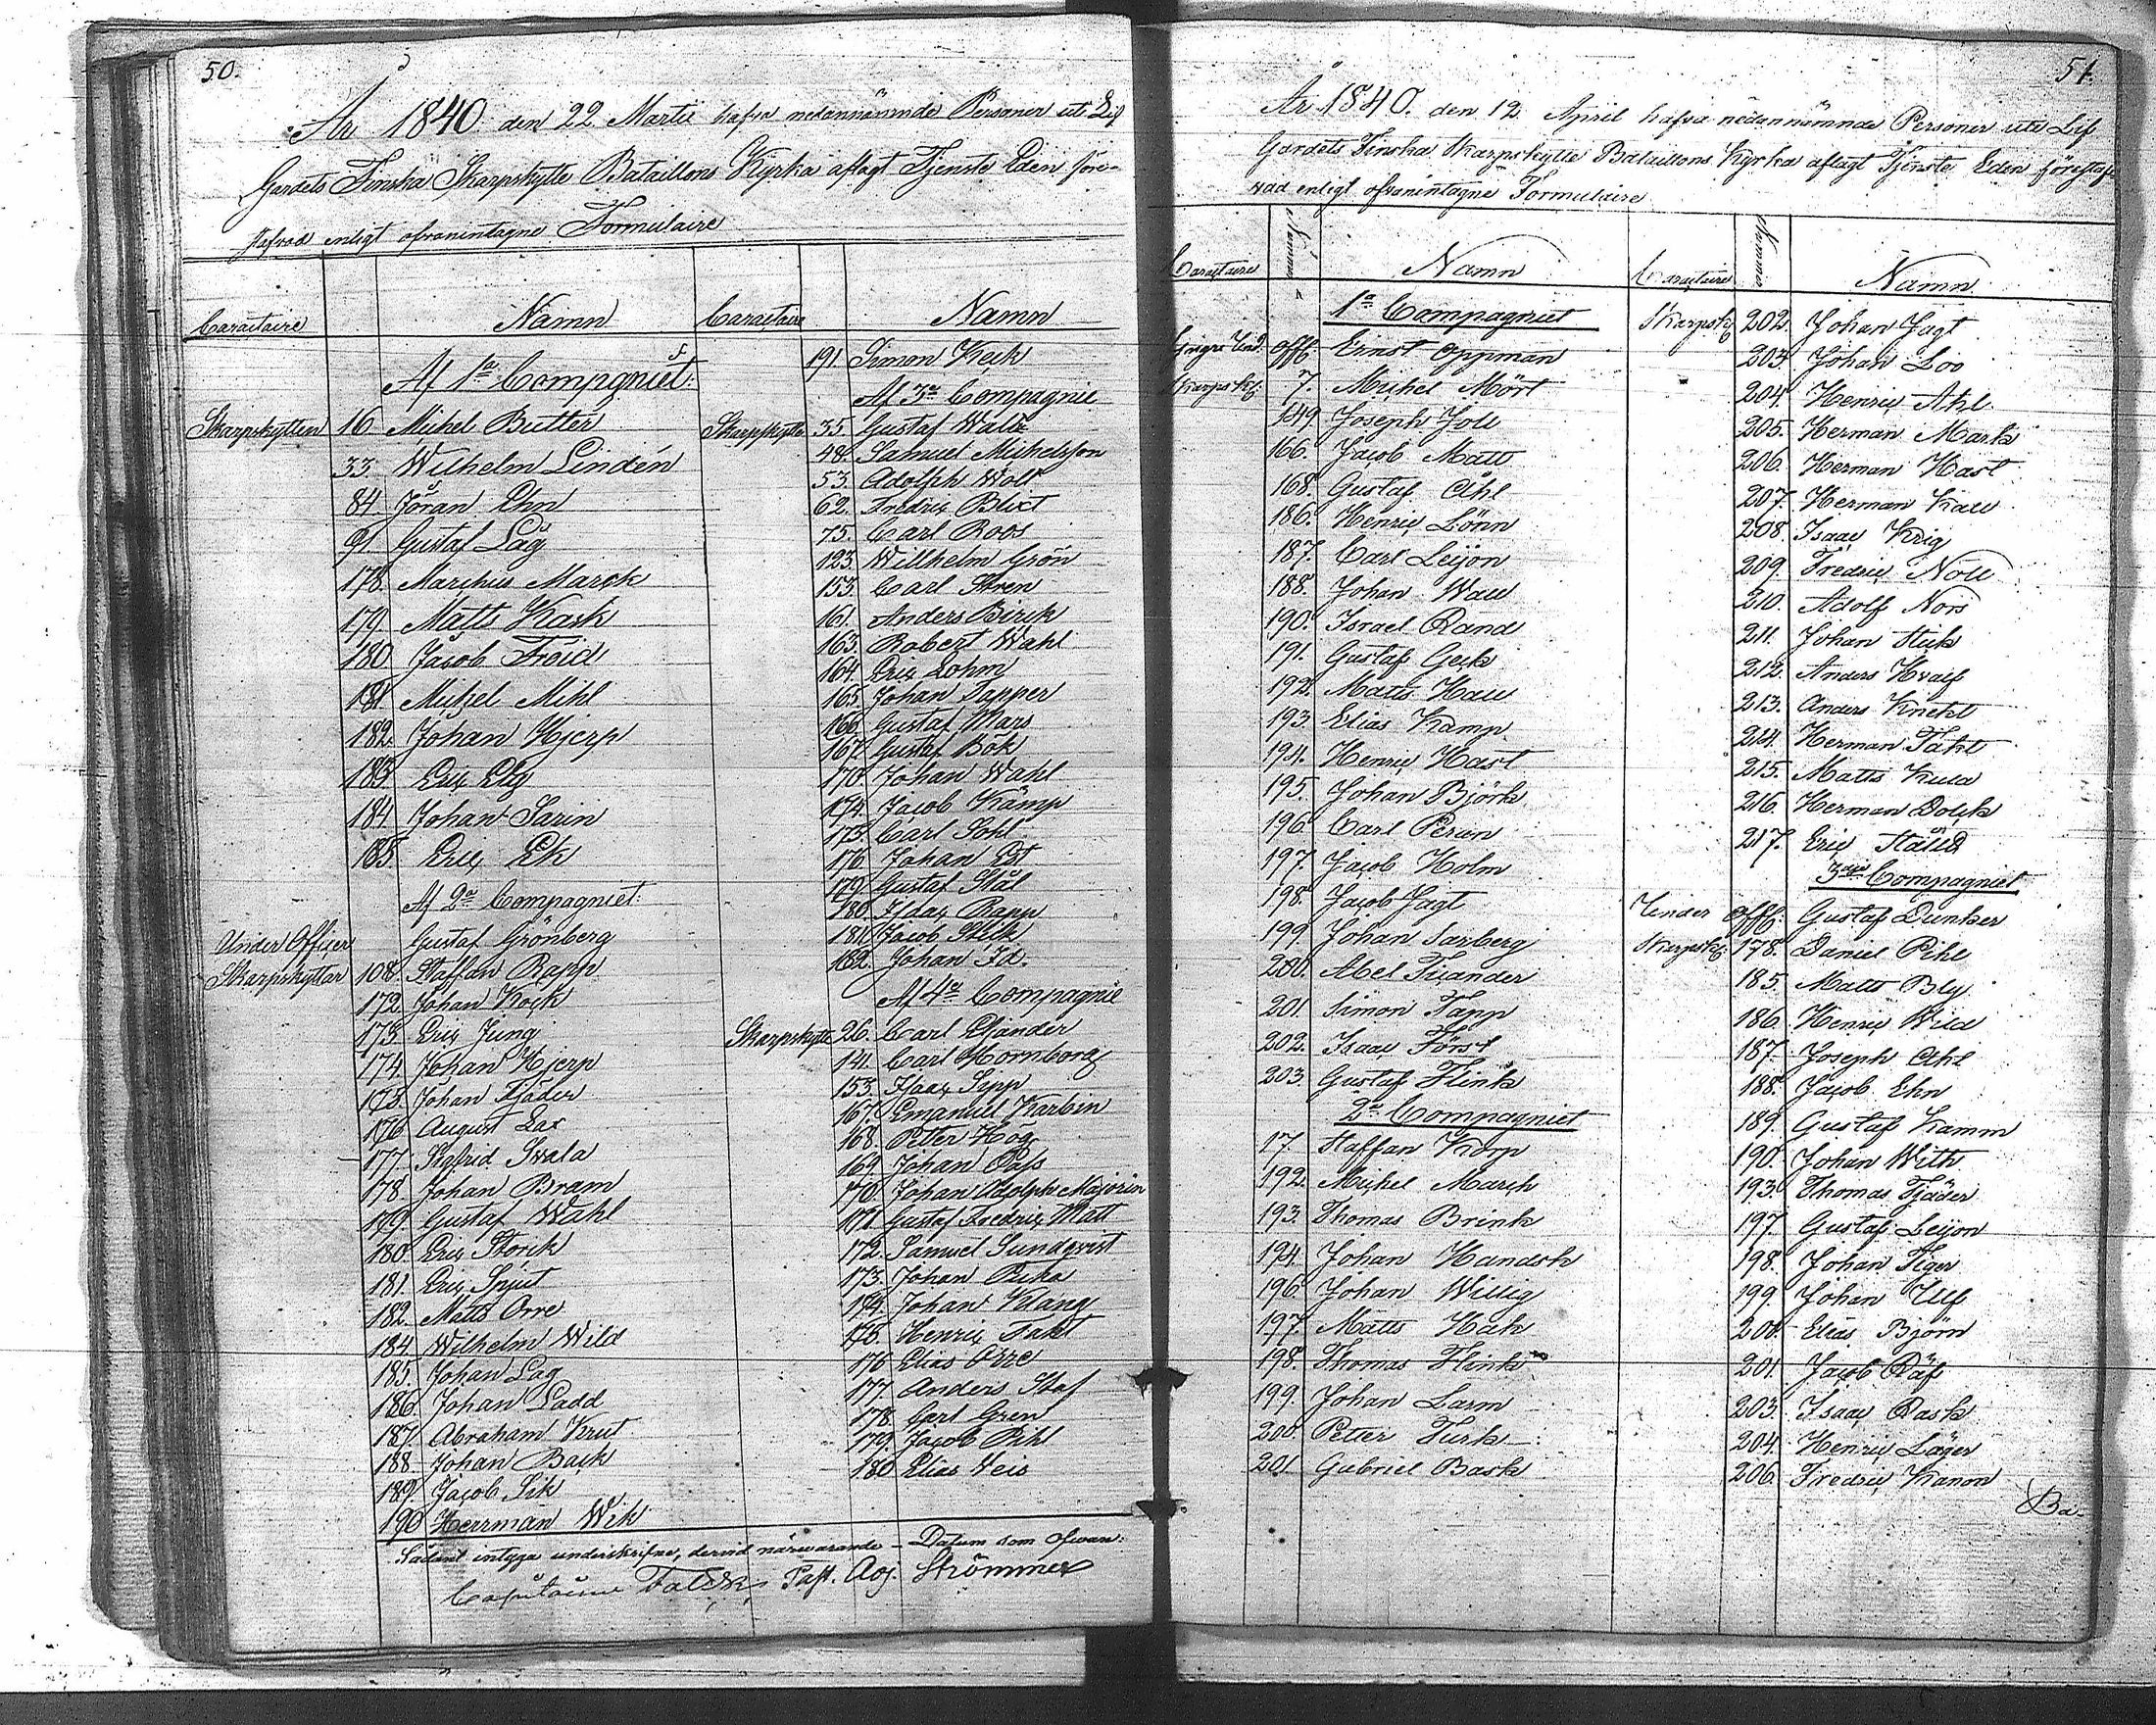 50.
År 1840 den 22 Martii hafva nedannämnde Personer uti Lif
Gardets Finska Skarpskytte Bataillons Kyrka aflagt Tjenste Eden före-
stafvad enligt ofvanintagne Formulaire
Caractaire Namn
Af 1a Compgniet:
Skarpskytten 16. Mihel Butter
33. Wilhelm Lindén
84. Jöran Ehn
91. Gustaf Låg
178. Marchus Marck
179. Matts Kask
180 Jacob Froid
181. Michel Mihl
182. Johan Hjerp
183. Eric Elg
184. Johan Sarin
185. Eric Ek
Af 2a Compagniet:
Under Officer Gustaf Grönberg
Skarpskyttar 108. Staffan Rapp
172. Johan Kock
173. Eric Jung
174. Johan Hjerp
175. Johan Tjäder
176. August Lax
177. Sigfrid Svala
178. Johan Bram
179. Gustaf Wahl
180. Eric Storck
181. Eric Spjut
182. Matts Orre
184. Wilhelm Wild
185. Johan Lag
186. Johan Ladd
187. Abraham Krut
188. Johan Back
189. Jacob Sik
190 Herrman Wik
Caractaire Namn
191. Simon Keck
Af 3a Compagnie
Skarpskytte 35. Gustaf Wall
48. Samuel Michelsson
53. Adolph Wolt
62. Fredric Blixt
75. Carl Roos
123. Willhelm Grön
153. Carl Stren
161. Anders Birck
163. Robert Wahl
164. Eric Lohm
165. Johan Tapper
166. Gustaf Mars
167. Gustaf Bök
170. Johan Wahl
174. Jacob Kämp
175. Carl Sohl
176. Johan Est
179. Gustaf Stål
180. Isaac Rapp
181. Jacob Stick
182. Johan Id.
Af 4a Compagnie
Skarpskytte 26. Carl Elfander
141. Carl Hornborg
153. Isaac Sipp
167. Emanuel Karbin
168. Petter Hög
169. Johan Pass
170. Johan Adolph Majorin
171. Gustaf Fredric Matt
172. Samuel Sundqvist
173. Johan Pika
174. Johan Klang
175. Henric Takt
176 Elias Orre
177 Anders Staf
178. Carl Gren
179. Jacob Pihl
180 Elias Veis
Sådant intyga underskrifne, dervid närvarande – Datum som ofvan:
Capitaine Past. Adj. Strömmer
51.
År 1840. den 12. April hafva nedannämnde Personer uti Lif
Gardets Finska Skarpskytte Bataillons Kyrka aflagt Tjenste Eden förestaf-
vad enligt ofvanintagne Formulaire
Caractaire Nummer Namn
1a Compagniet
Yngre Und. Offc. Ernst Oppman
Skarpskt. 7. Michel Mört
149. Joseph Joll
166. Jacob Matt
168. Gustaf Ahl
186. Henric Lönn
187. Carl Leijon
188. Johan Wall
190. Israel Rand
191. Gustaf Geck
192. Matts Hall
193. Elias Kamp
194. Henric Hast
195. Johan Björk
196. Carl Perun
197. Jacob Holm
198. Jacob Jagt
199. Johan Sarberg
200. Abel Tuander
201. Simon Tapp
202. Isaac Först
203. Gustaf Flink
2a Compagniet
17. Staffan Korp
192. Michel March
193. Thomas Brink
194. Johan Handsk
196. Johan Willig
197. Matts Hak
198. Thomas Flink
199. Johan Larm
200. Petter Turk
201 Gabriel Bask
Caractaire Nummer Namn
Skarpsk. 202. Johan Jagt
203. Johan Loo
204. Henric Ahl
205. Herman Mark
206. Herman Hast
207. Herman Kall
208. Isaac Krig
209. Fredric Noll
210. Adolf Nors
211. Johan Stick
212. Anders Hvalf
213. Anders Knekt
214. Herman Takt
215. Matts Kula
216. Herman Dolck
217. Eric Ställd
3dje Compagniet
Under Offc: Gustaf Dunker
Skarpsk. 178. Daniel Pihl
185. Matts Bly
186. Henric Wild
187. Joseph Ahl
188. Jacob Ehn
189. Gustaf Kamm
190. Johan With
193. Thomas Tjäder
197. Gustaf Leijon
198. Johan Tiger
199. Johan Ulf
200. Elias Björn
201. Jacob Räf
203. Isaac Rask
204. Henric Läger
206. Fredric Kanon
Ba-